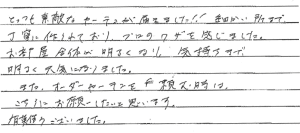 とっても素敵なカーテンが届きました!! 細かい所まで
丁寧に作られており、プロのワザを感じました。
お部屋全体が明るくなり、気持ちまで
明るく元気になりました。
また、オーダーカーテンを頼む時は、
こちらにお願いしたいと思います。
有難うございました。